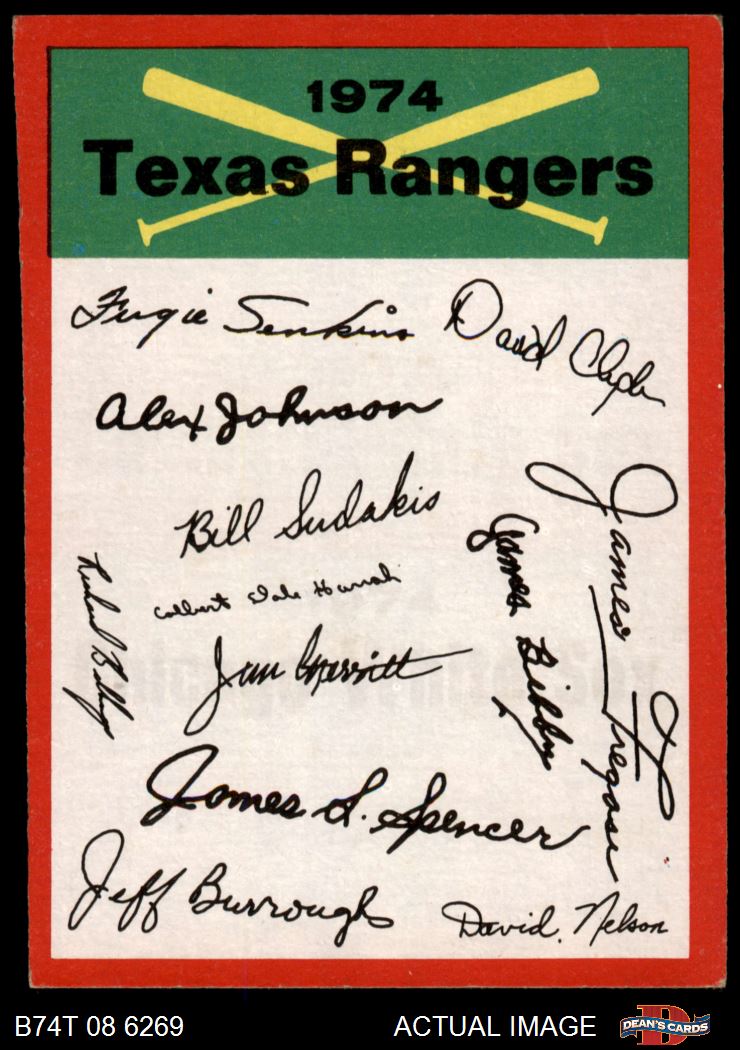 1974
Texas Rangers
Fergie Jenkins
David Clyde
Alex Johnson
Bill Sudakis
James Fregosi
James Bibby
Colbert Dale Hamrah
Richard Billings
Jim Merritt
James L. Spencer
Jeff Burroughs
David. Nelson
B74T 08 6269
ACTUAL IMAGE
D
DEAN'S CARDS